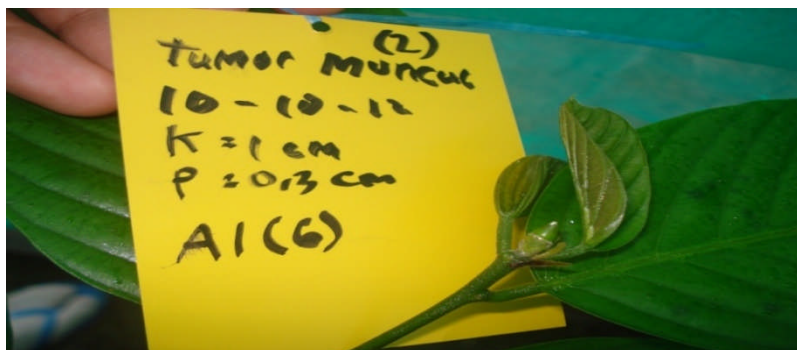 Tumor muncul (2)
10-10-12
K = 1 cm
P = 0,3 cm
A1(6)